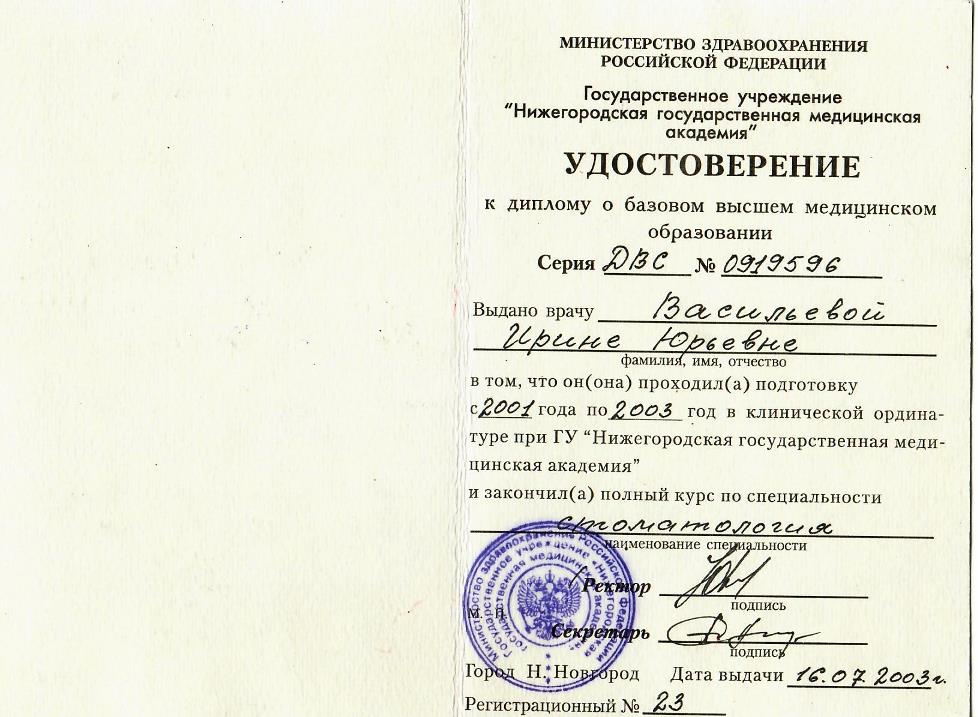 МИНИСТЕРСТВО ЗДРАВООХРАНЕНИЯ
РОССИЙСКОЙ ФЕДЕРАЦИИ
Государственное учреждение
"Нижегородская государственная медицинская
академия"
УДОСТОВЕРЕНИЕ
к диплому о базовом высшем медицинском
образовании
Серия ДВС № 0919596
Выдано врачу Васильевой
Ирине Юрьевне
фамилия, имя, отчество
в том, что он(она) проходил(а) подготовку
с 2001 года по 2003 год в клинической ордина-
туре при ГУ "Нижегородская государственная меди-
цинская академия"
и закончил(а) полный курс по специальности
стоматология
наименование специальности
Ректор
подпись
М. П.
Секретарь
подпись
Город Н. Новгород Дата выдачи 16.07.2003г.
Регистрационный № 23
Министерство здравоохранения Российской Федерации
Государственное учреждение «Нижегородская
государственная медицинская академия»